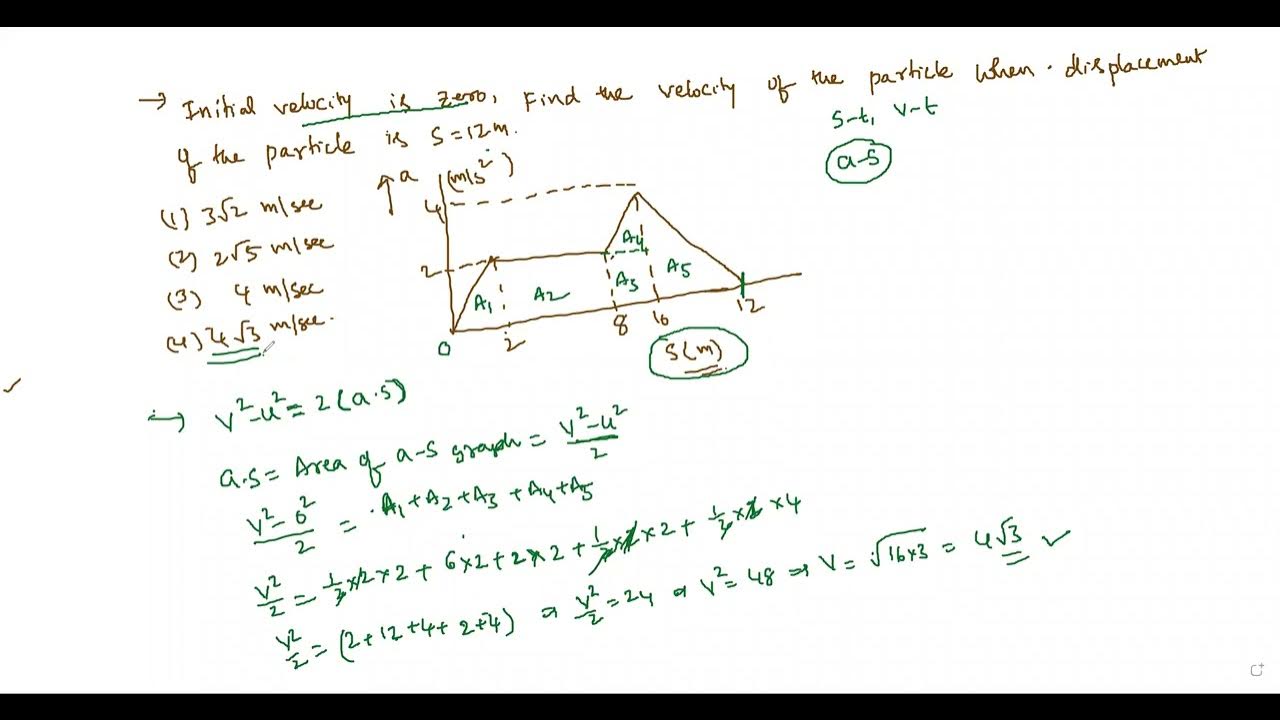 → Initial velocity is zero, Find the velocity of the particle when displacement
of the particle is S=12m.
S-t, V-t
a-s
(1) 3√2 m/sec
(2) 2√5 m/sec
(3) 4 m/sec
(4) 4√3 m/sec.
a (m/s²)
4
2
A1
A2
A3
A4
A5
0
2
8
10
12
S(m)
→ V²-u²=2(a.s)
a.s = Area of a-s graph = V²-u²/2
V²-0²/2 = A1+A2+A3+A4+A5
V²/2 = 1/2×2×2 + 6×2+2×2 + 1/2×2×2 + 1/2×2×4
V²/2 = (2+12+4+2+4) ⇒ V²/2=24 ⇒ V²=48 ⇒ V=√16×3 = 4√3 ✓